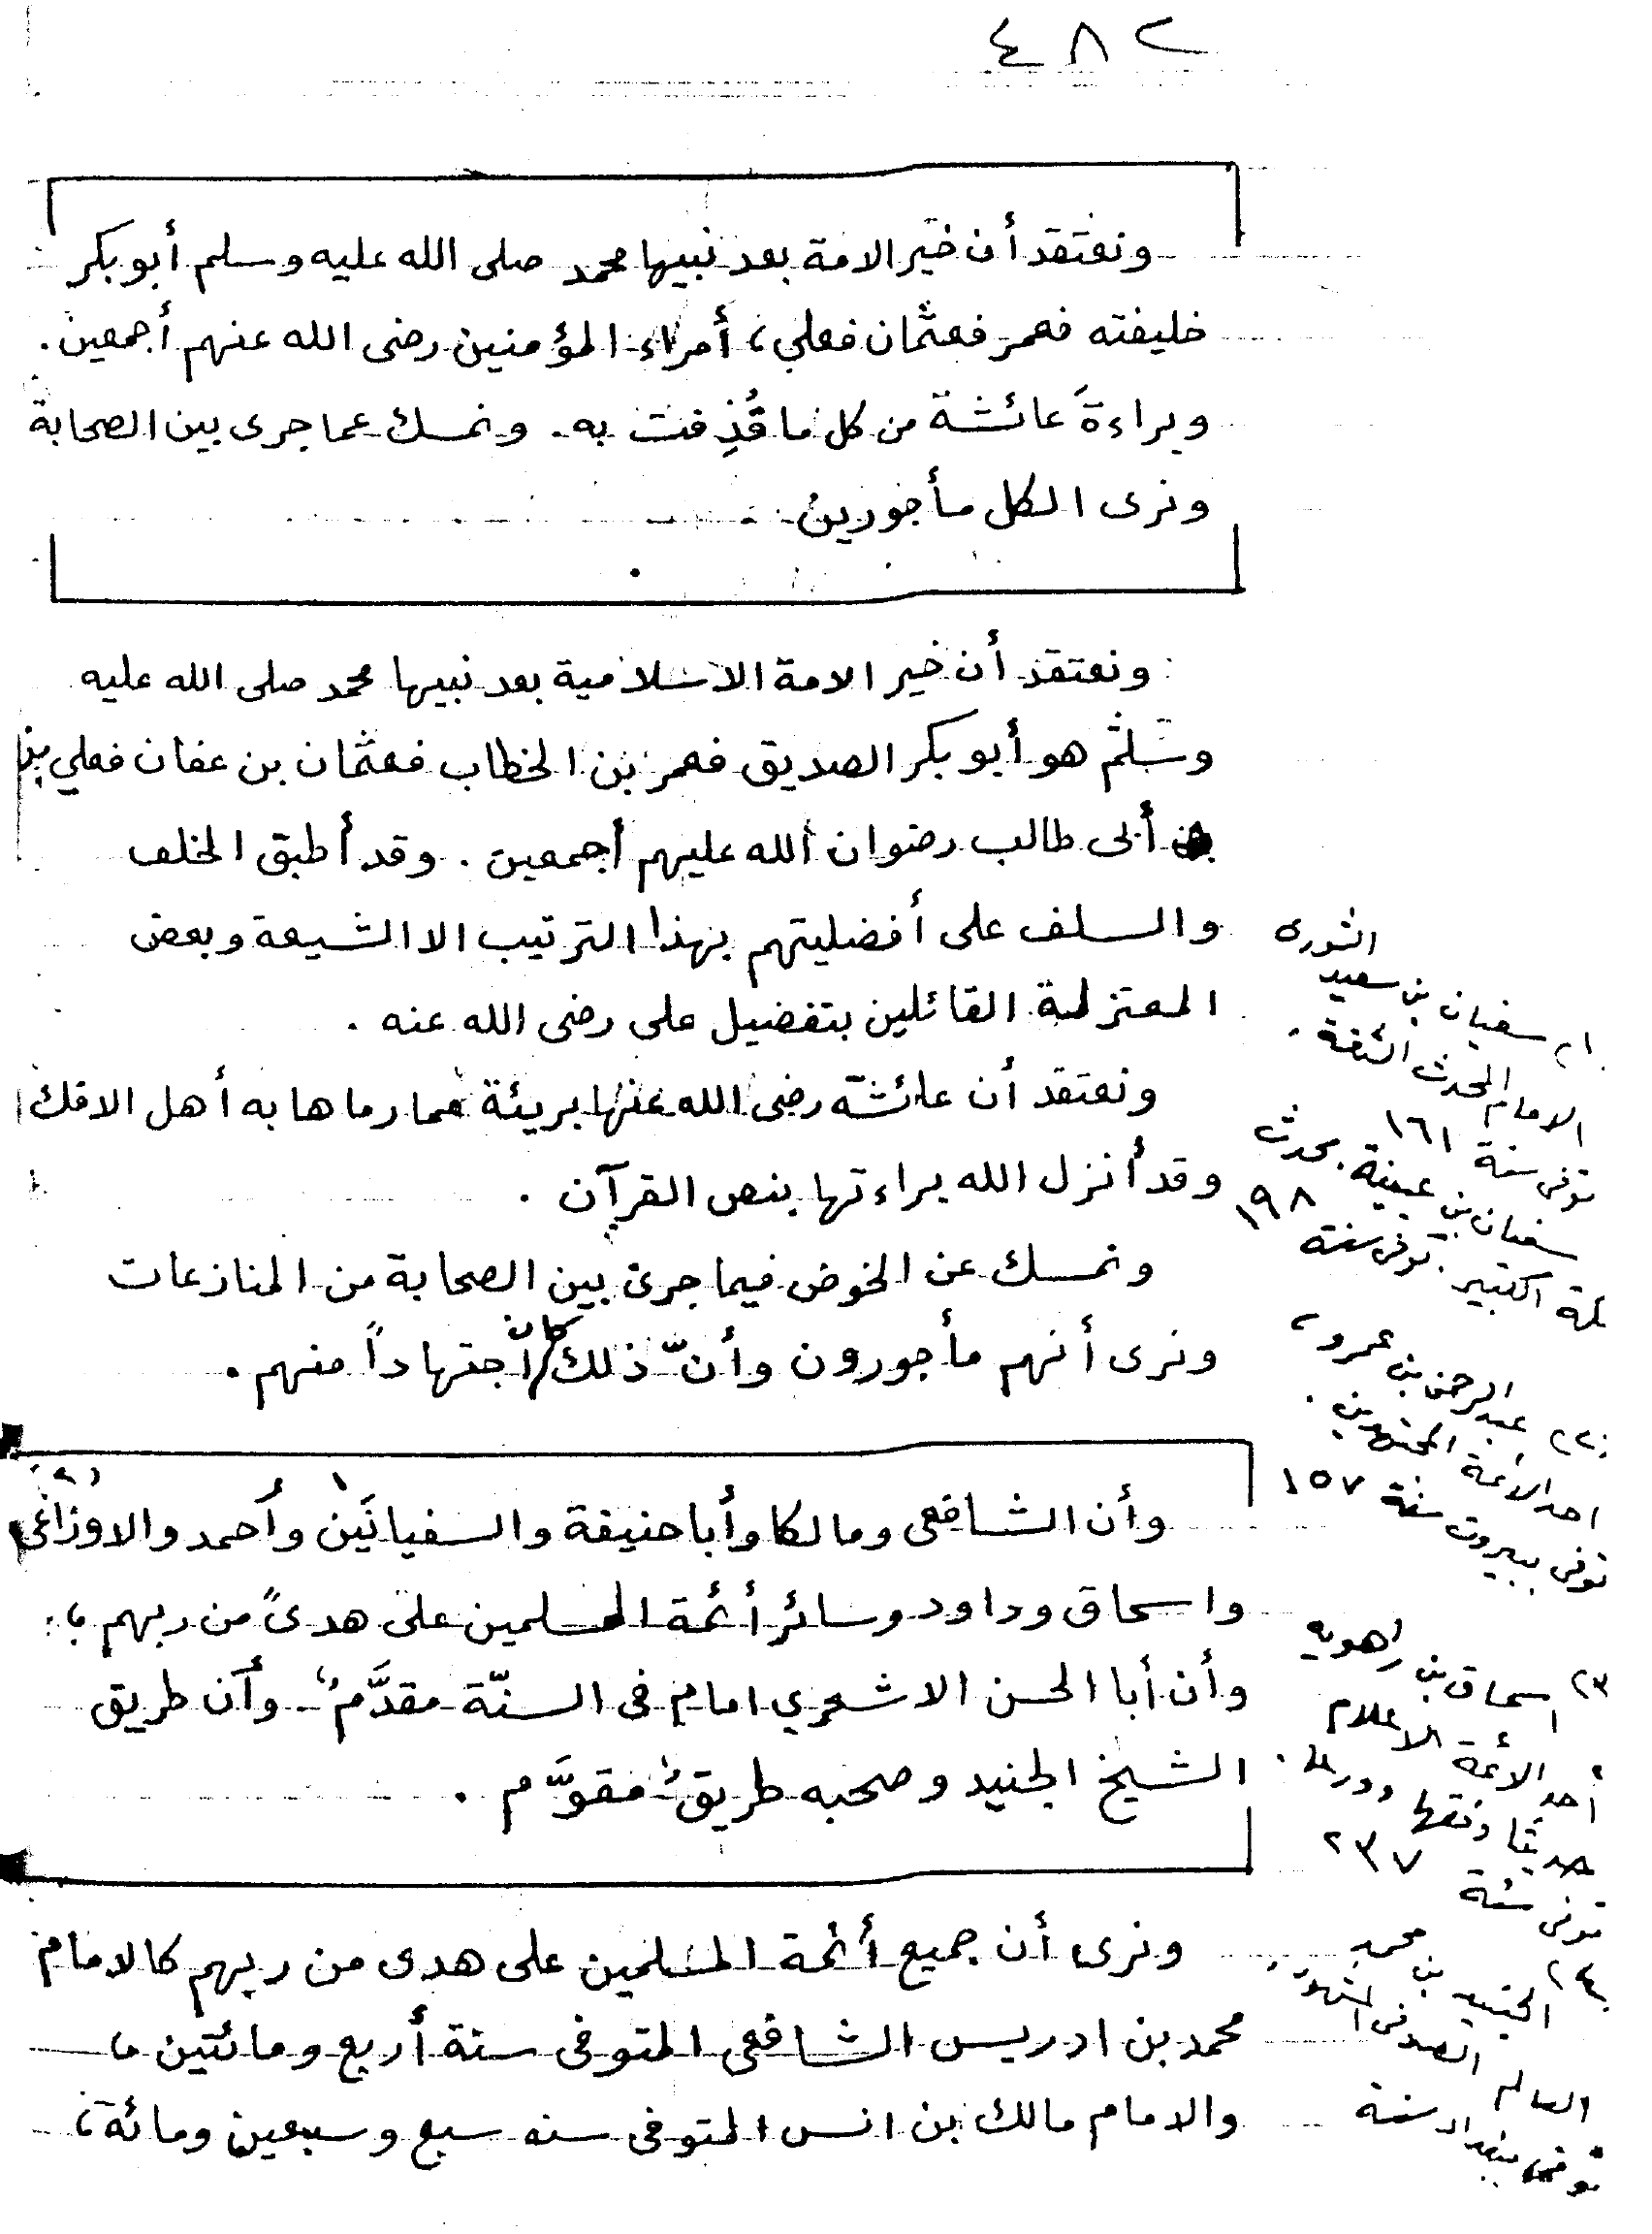 ٤٨٢
ونعتقد أن خير الامة بعد نبيها محمد صلى الله عليه وسلم أبو بكر
خليفته فعمر فعثمان فعلي، أمراء المؤمنين رضى الله عنهم أجمعين.
وبراءةَ عائشة من كل ما قُذِفت به. ونمسك عما جرى بين الصحابة
ونرى الكل مأجورين.
ونعتقد أن خير الامة الاسلامية بعد نبيها محمد صلى الله عليه
وسلم هو أبو بكر الصديق فعمر بن الخطاب فعثمان بن عفان فعلي بن
أبى طالب رضوان الله عليهم أجمعين. وقد أطبق الخلف
والسلف على أفضليتهم بهذا الترتيب الا الشيعة وبعض
المعتزلة القائلين بتفضيل على رضى الله عنه.
ونعتقد أن عائشة رضى الله عنها بريئة مما رماها به أهل الافك
وقد أنزل الله براءتها بنص القرآن.
ونمسك عن الخوض فيما جرى بين الصحابة من المنازعات
ونرى أنهم مأجورون وأنّ ذلك كان اجتهاداً منهم.
وأن الشافعى ومالكا وأبا حنيفة والسفيانَين وأحمد والاوزاعى
واسحاق وداود وسائر أئمة المسلمين على هدىً من ربهم،
وأن أبا الحسن الاشعري امام فى السنّة مقدَّمٌ، وأن طريق
الشيخ الجنيد وصحبه طريقٌ مقوَّم.
ونرى أن جميع أئمة المسلمين على هدى من ربهم كالامام
محمد بن ادريس الشافعى المتوفى سنة أربع ومائتين،
والامام مالك بن انس المتوفى سنه سبع وسبعين ومائة،
الثورى
٢١ سفيان بن سعيد
الامام المحدث الثقة.
توفى سنة ١٦١
سفيان بن عيينة. محدث
مكة الكبير. توفى سنة ١٩٨
٢٢ عبد الرحمن بن عمرو،
احد الائمة المجتهدين.
توفى ببيروت سنة ١٥٧
٢٣ اسحاق بن راهويه
أحد الأئمة الاعلام
حديثا وفقها وورعا.
توفى سنة ٢٣٧
٢٤ الجنيد بن محمد
العالم الصوفى المشهور.
توفى ببغداد سنة